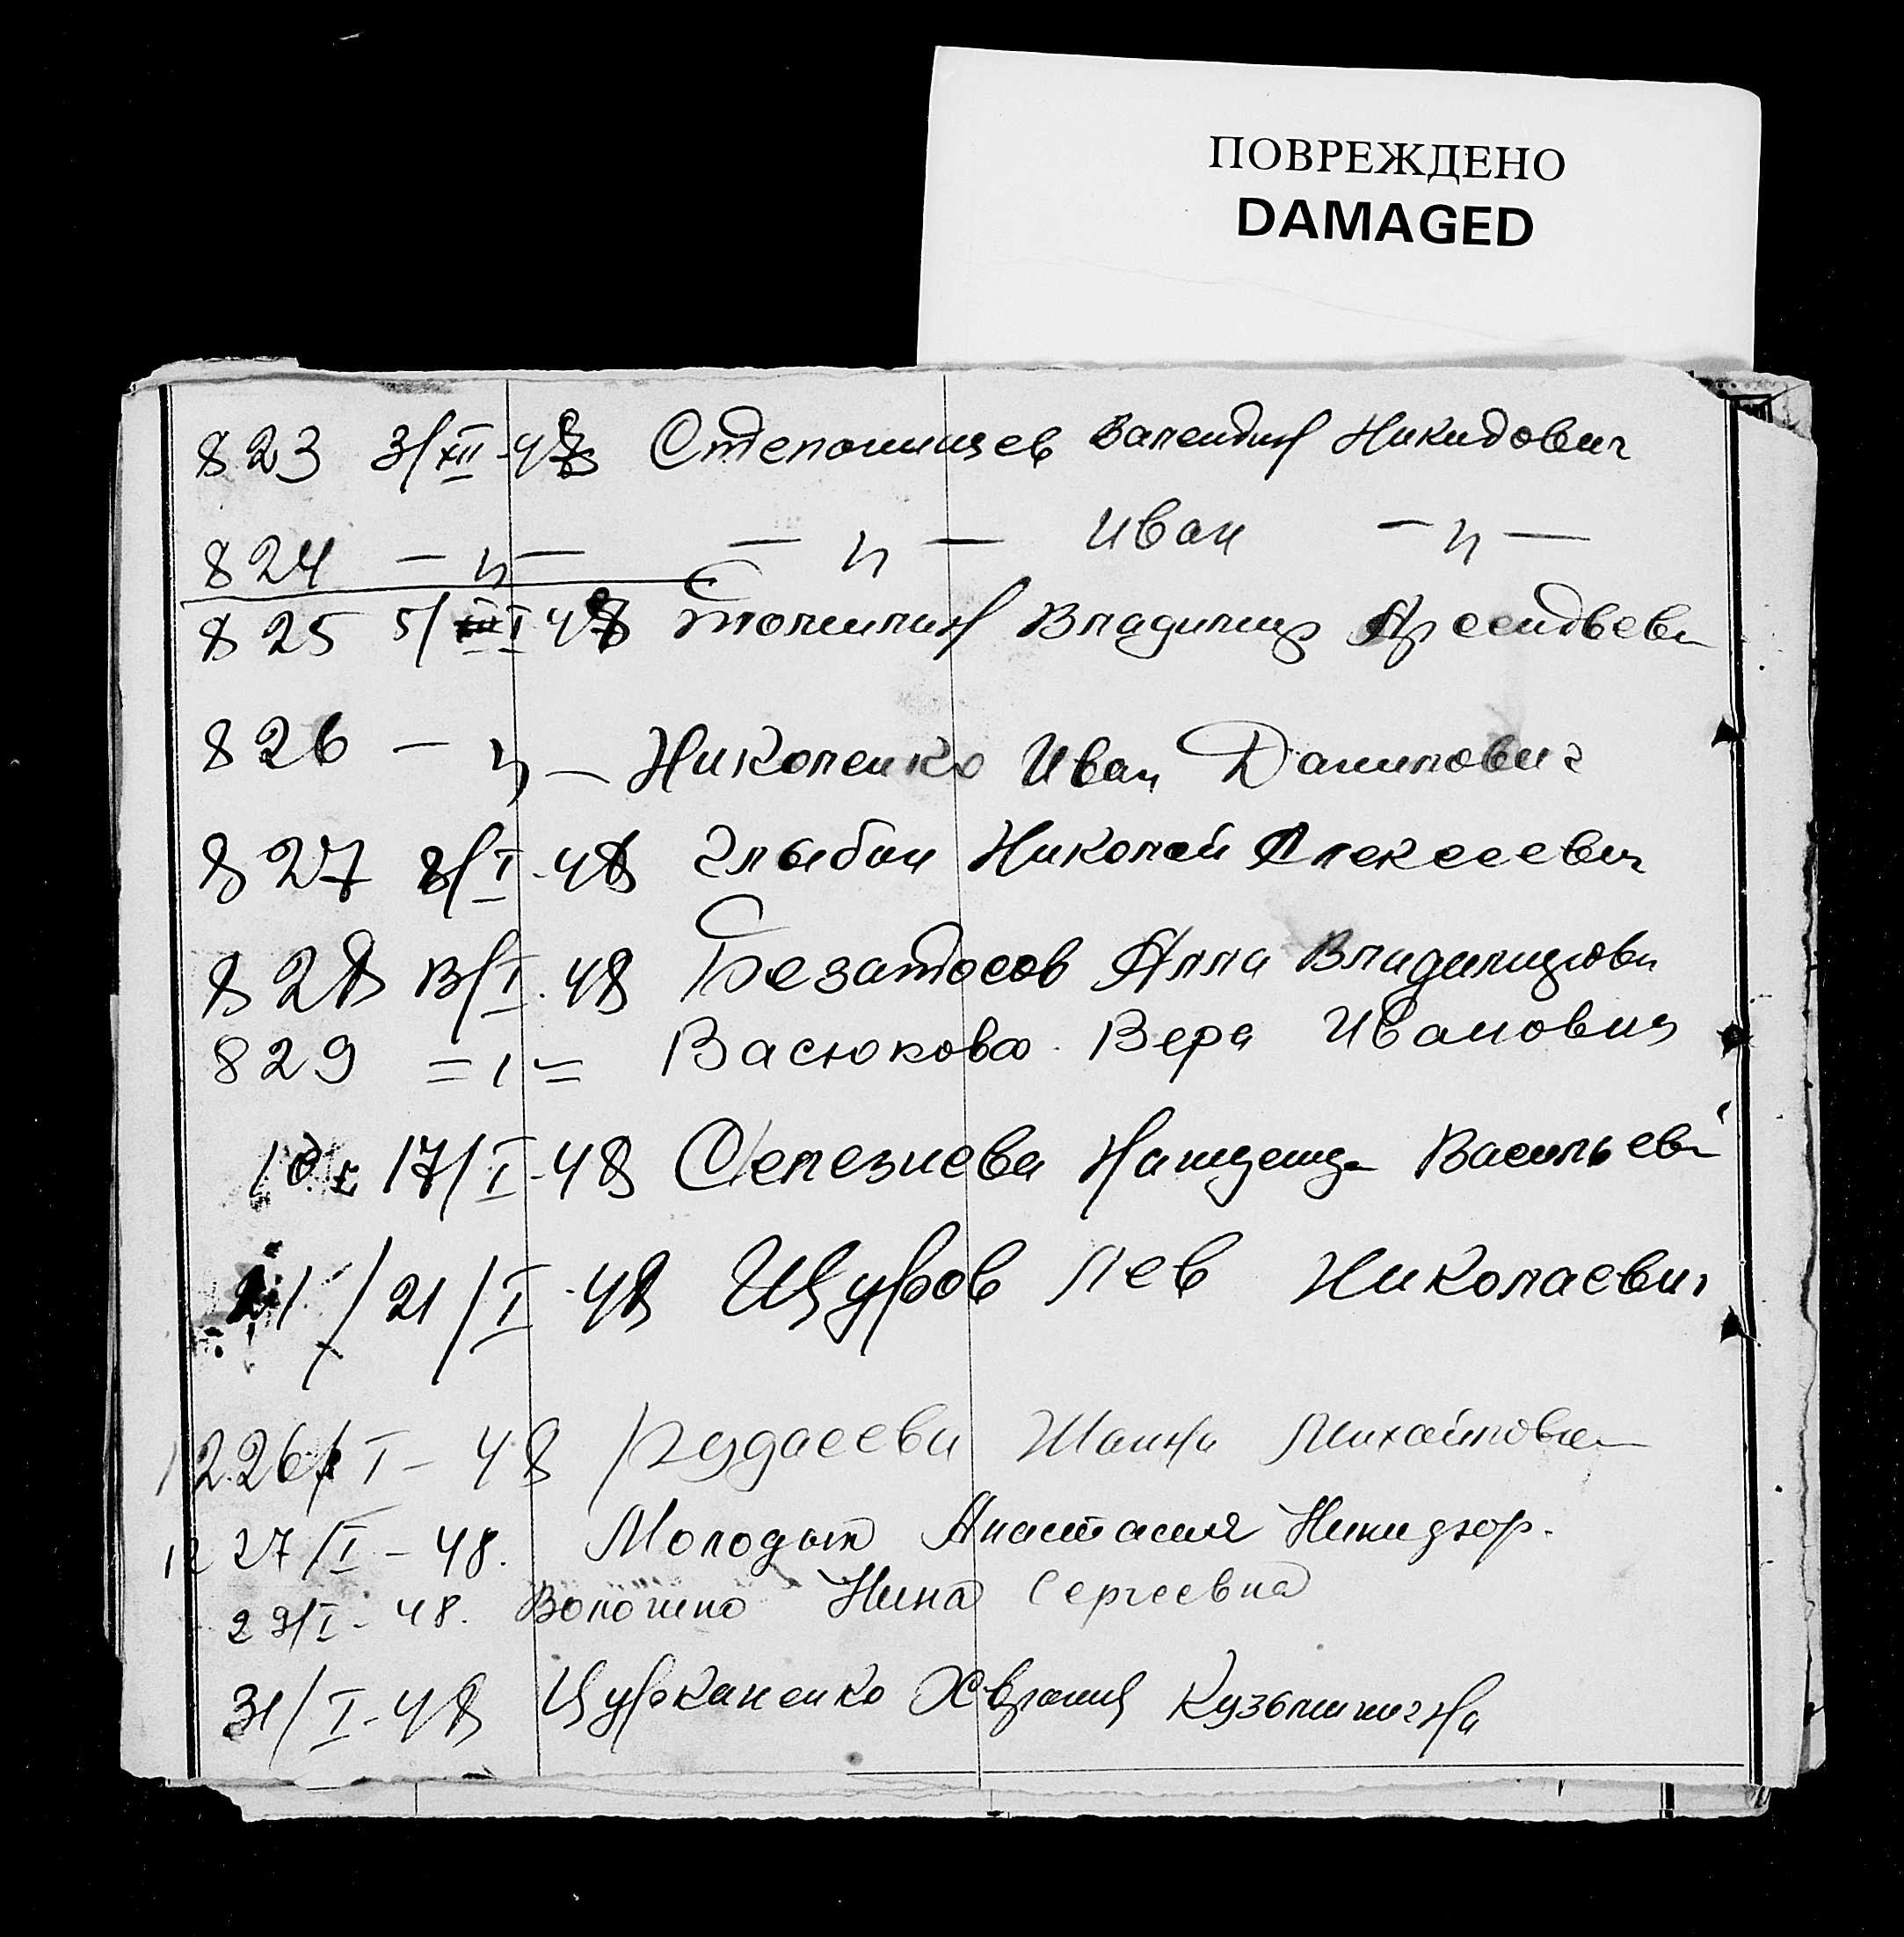 ПОВРЕЖДЕНО
DAMAGED
823 3/XII-48 Степанищев Валентин Никитович
824 — " — — " — Иван — " —
825 5/I 48 Владимир Арсентьеви
826 — " — Николенко Иван Данилович
827 8/I-48 Глыбан Николай Алексеевич
828 13/I.48 Безатосов Алла Владимировн
829 = 1 = Васюкова Вера Ивановна
17/I-48 Селезнева Надежда Васильев
21/I-48 Щуров Лев Николаевич
12 26/I-48 Михайловна
27/I-48. Молодых Анастасия
29/I-48. Волошко Нина Сергеевна
31/I-48 Цурканенко Кузьминична